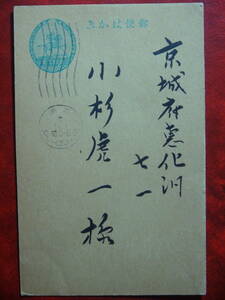 郵便はがき
京城府惠化洞
七一
小杉虎一様